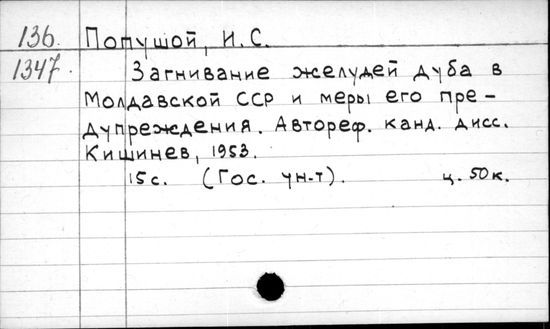 136. Попушой, И.С.
1347. Загнивание желудей дуба в
Молдавской ССР и меры его пре-
дупреждения. Автореф. канд. дисс.
Кишинев, 1953.
15с. (Гос. ун-т). ц. 50к.